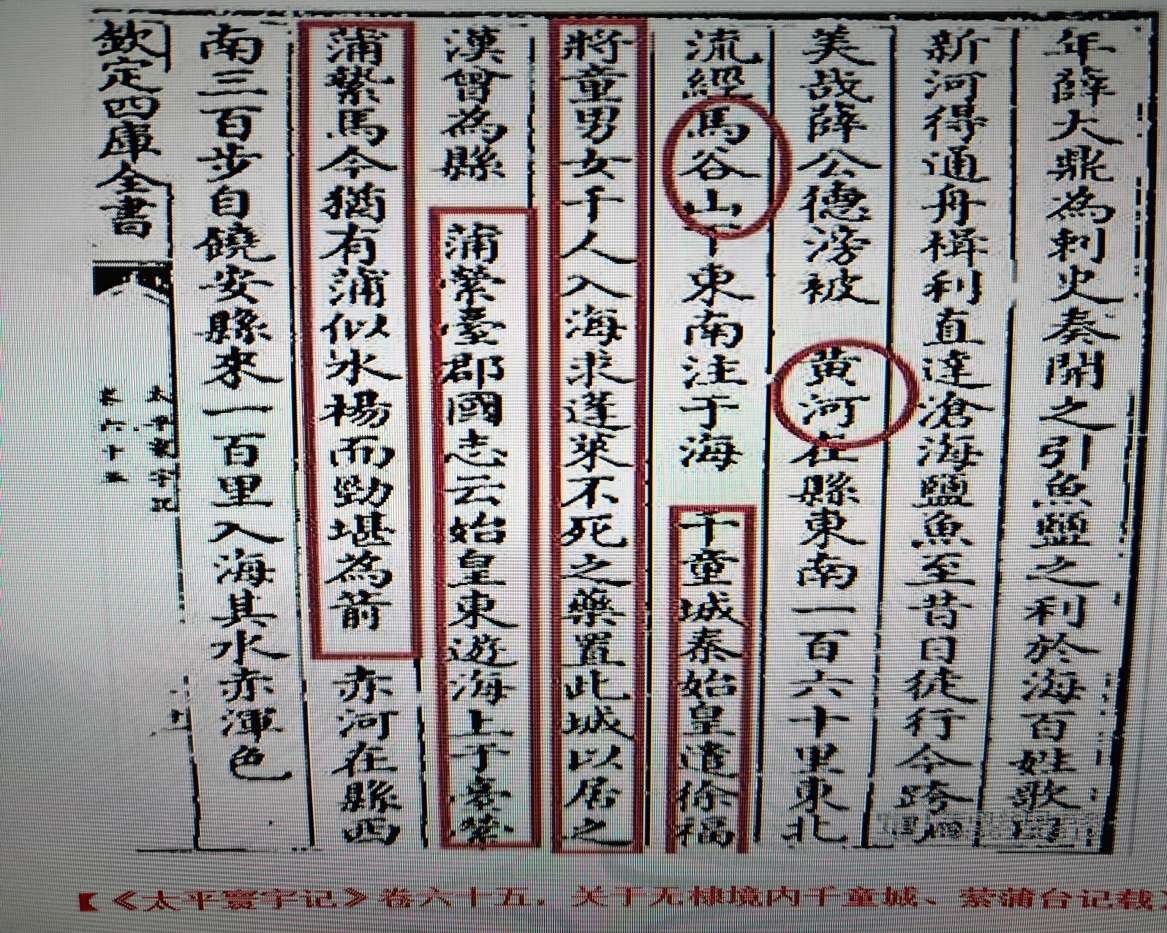 年薛大鼎為刺史奏開之引魚鹽之利於海百姓歌曰
新河得通舟楫利直達滄海鹽魚至昔日徒行今
美哉薛公德滂被 黄河在縣東南一百六十里東北
流經馬谷山下東南注于海 千童城秦始皇遣徐福
將童男女千人入海求蓬萊不死之藥置此城以居之
漢曾為縣 蒲縈臺郡國志云始皇東遊海上于臺縈
蒲縶馬今猶有蒲似水楊而勁堪為箭 赤河在縣西
南三百步自饒安縣來一百里入海其水赤渾色
欽定四庫全書
太平寰宇記
卷六十五
【《太平寰宇记》卷六十五，关于无棣境内千童城、萦蒲台记载